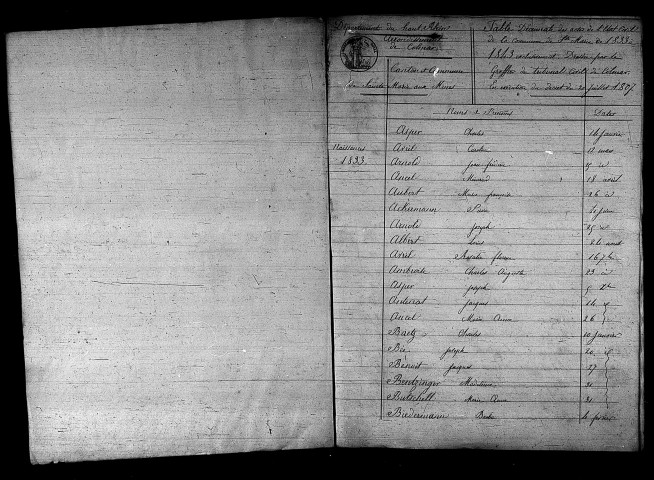 Département du haut Rhin
Arrondissement
de Colmar
Canton et Commune
de Sainte Marie aux Mines
Table Décennale des actes de l'Etat Civil
de la commune de Ste Marie de 1833 à
1843 exclusivement Dressée par le
Greffier du tribunal Civil de Colmar
En exécution du décret du 20 juillet 1807
Noms & Prénoms Dates
Naissances
1833
Asper Charles 14 janvier
Avril 17 mars
Arnold
Ancel 18 avril
Aubert Marie françoise 26 id
Ackermann
Arnold joseph 25 id
Albert Louis 24 août
Avril Rosalie 16 7bre
Ambroise Charles Auguste 23 id
Asper joseph
Antoinat Jacques 14
Ancel Marie Anne 26
Baetz Charles 10 janvier
Bis joseph 20 id
Benoit Jacques 27
Bentzinger Madeleine 31
Butschell Marie Anne 31
Biedermann 4 février